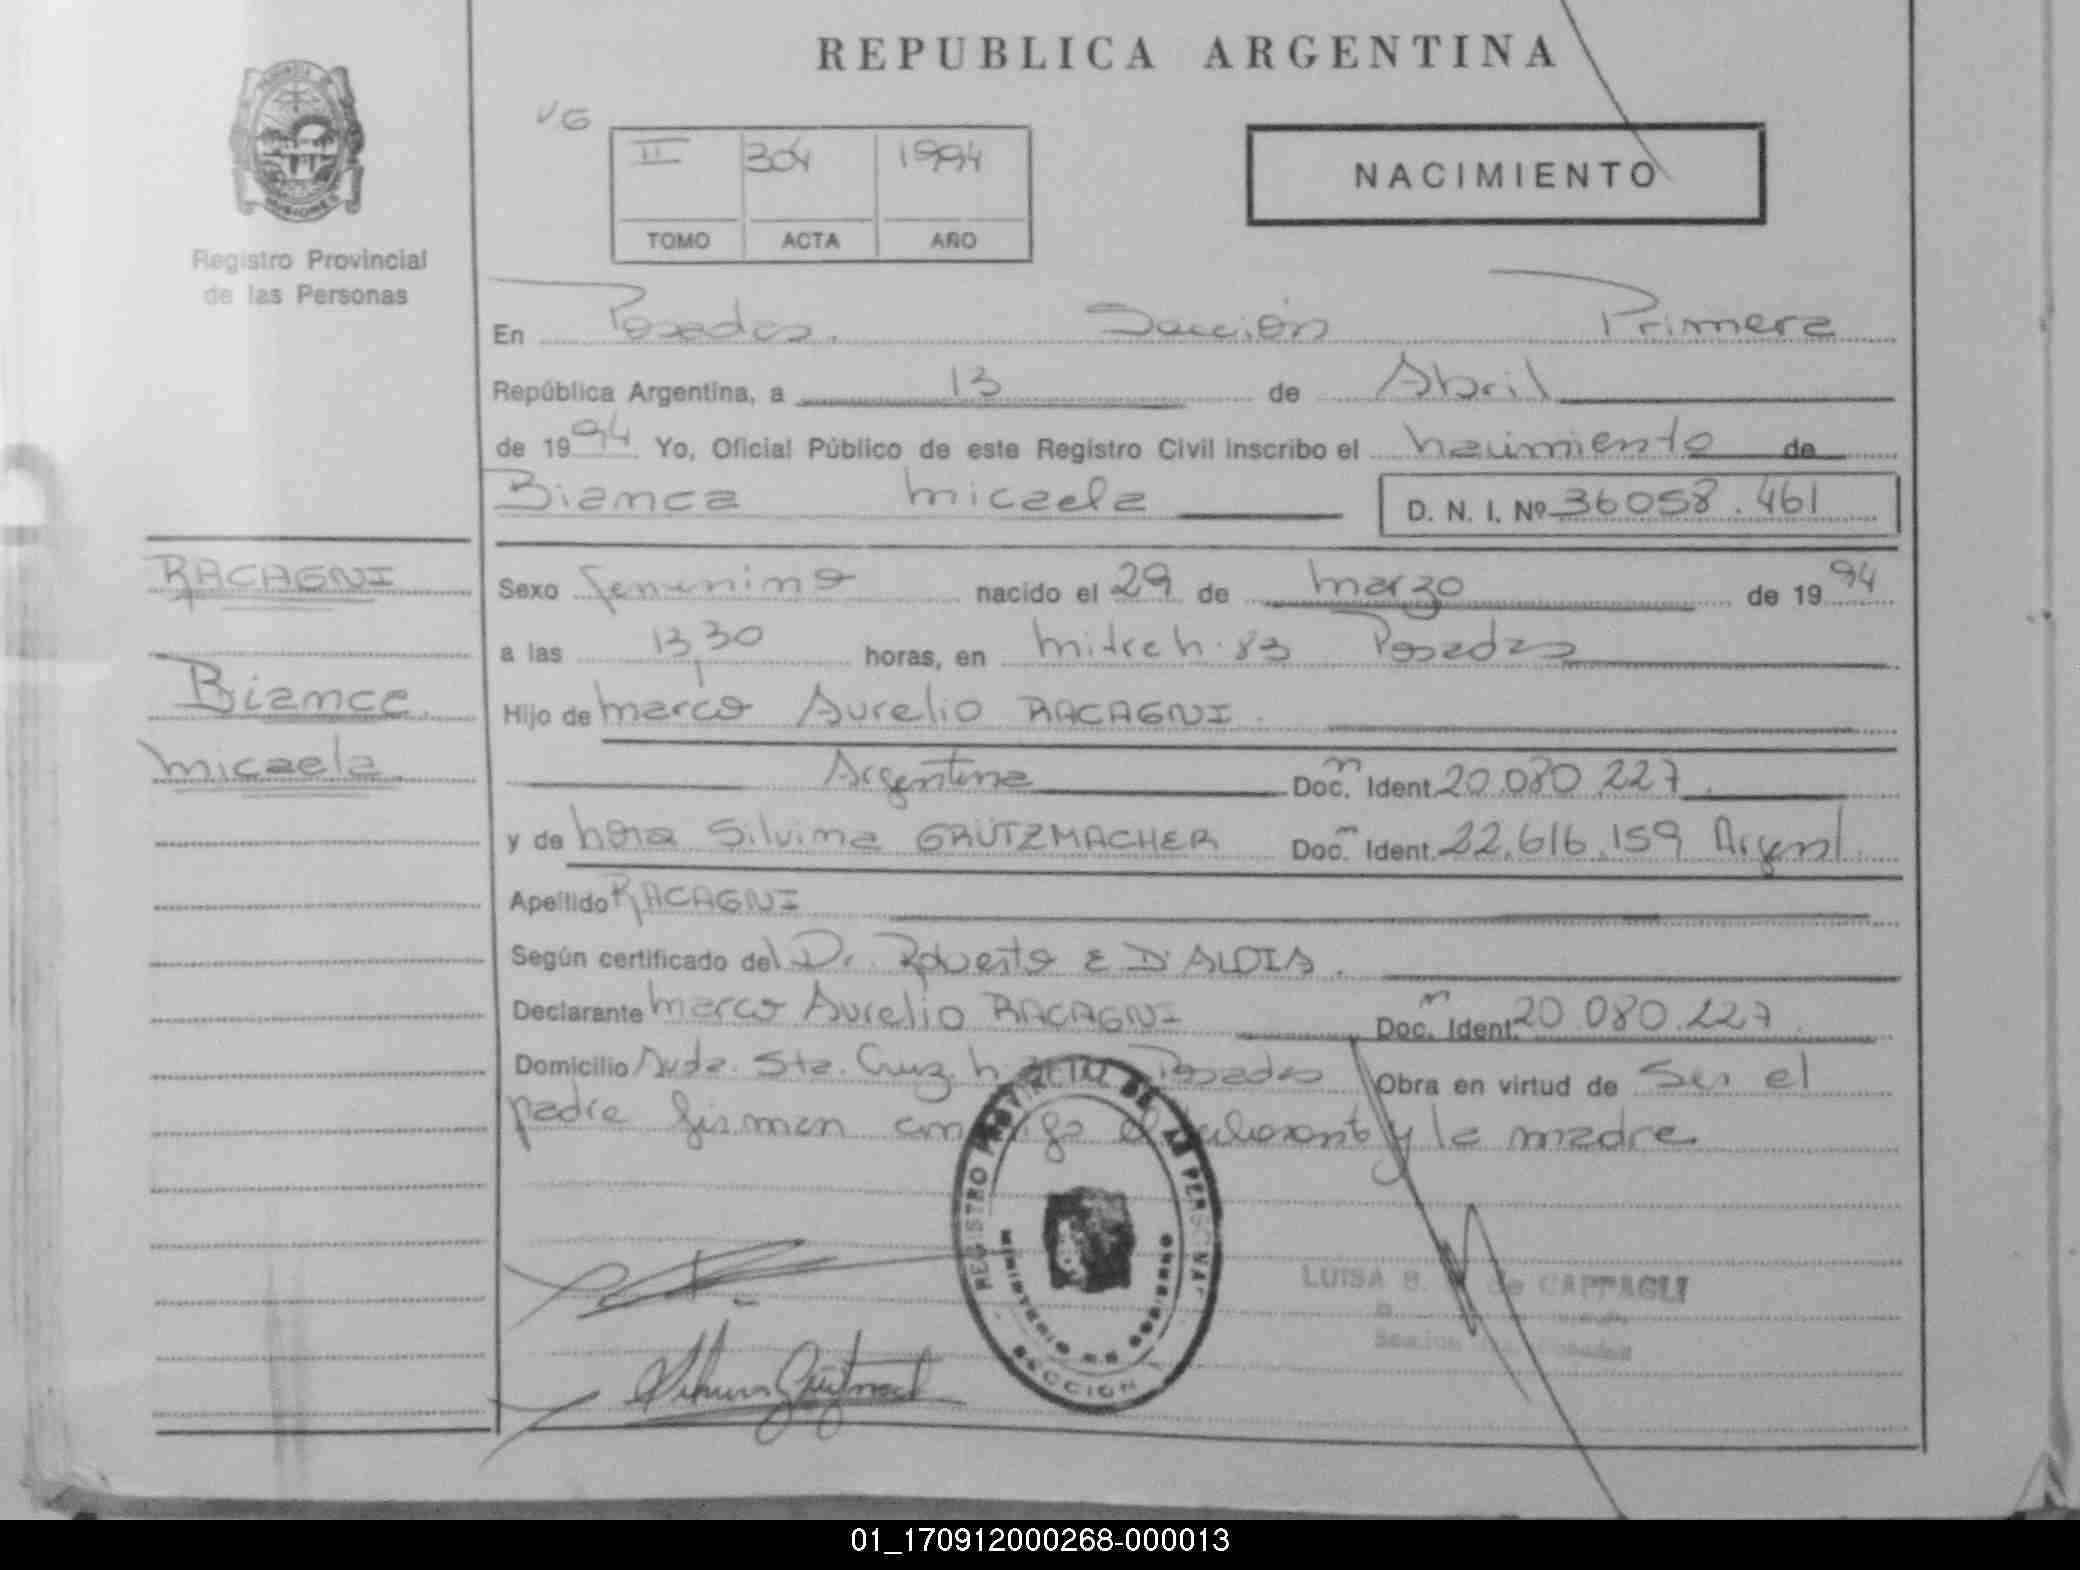 REPUBLICA ARGENTINA
MISIONES
Registro Provincial
de las Personas
VG
II 304 1994
TOMO ACTA AÑO
NACIMIENTO
En Posadas. Sección Primera
República Argentina, a 13 de Abril
de 1994 Yo, Oficial Público de este Registro Civil inscribo el nacimiento de
Bianca Micaela D. N. I. Nº 36058.461
RACAGNI
Bianca
Micaela
Sexo femenino nacido el 29 de marzo de 1994
a las 13,30 horas, en Mitre n. 83 Posadas
Hijo de Marco Aurelio RACAGNI.
Argentina Doc. Ident. 20.080.227.
y de Nora Silvina GRÜTZMACHER Doc. Ident. 22.616.159 Argent.
Apellido RACAGNI
Según certificado del Dr. Roberto E D'ALOIA.
Declarante Marco Aurelio RACAGNI Doc. Ident. 20 080.227.
Domicilio Avda. Sta. Cruz. n Posadas Obra en virtud de Ser el
padre firman el y la madre.
REGISTRO PROVINCIAL DE LAS PERSONAS
MINISTERIO DE GOBIERNO
SECCION
LUISA B. de CAPPAGLI
01_170912000268-000013